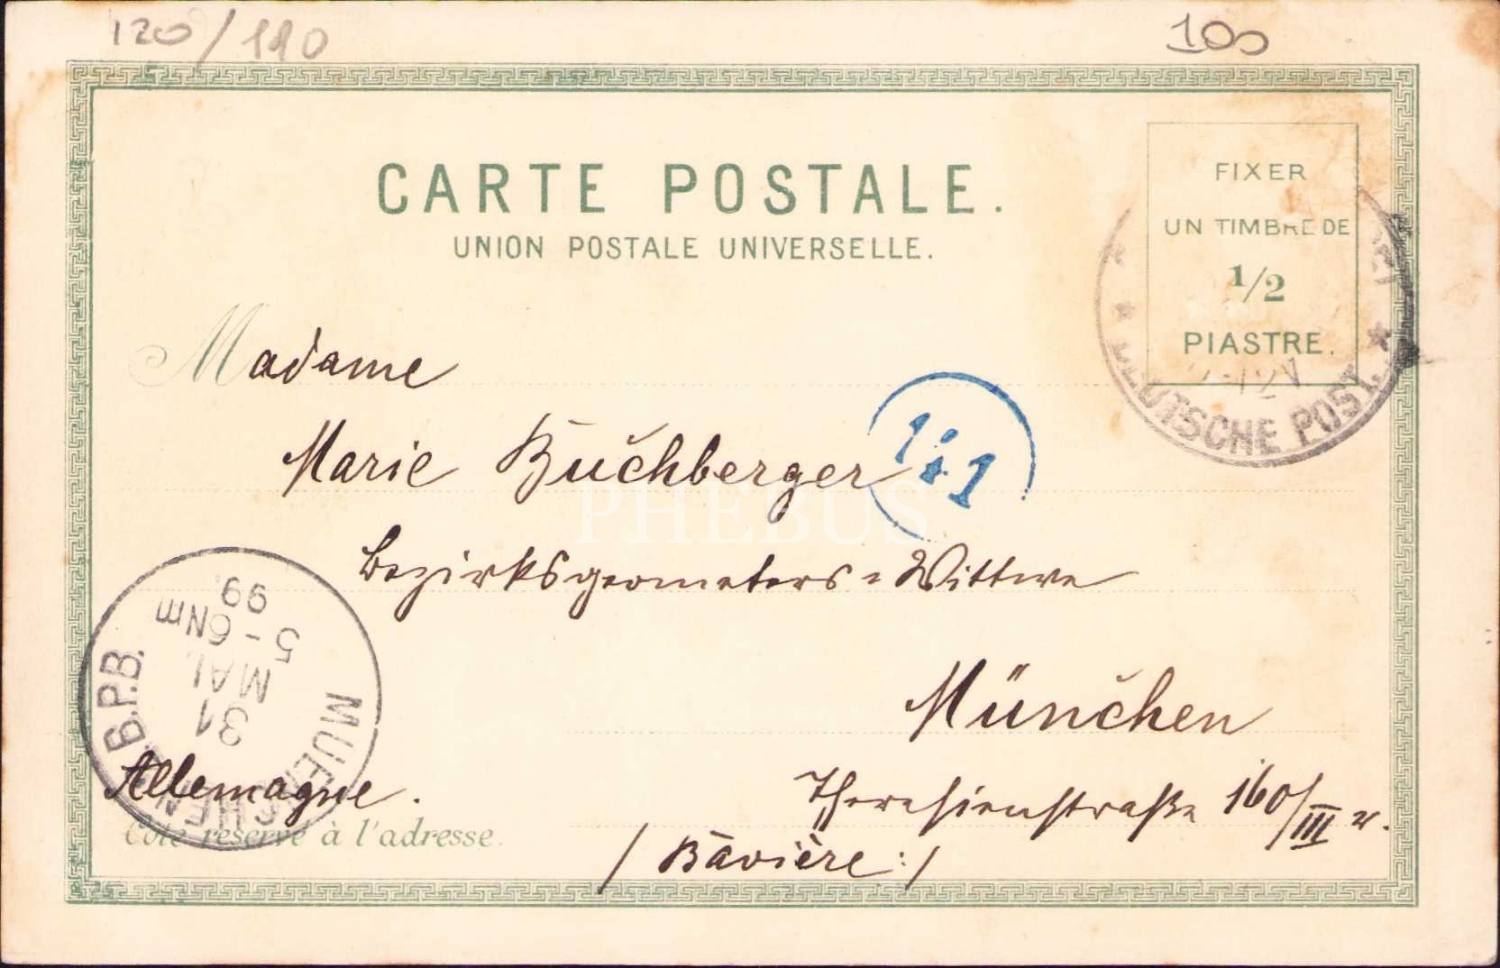 120/110
100
CARTE POSTALE.
UNION POSTALE UNIVERSELLE.
FIXER
UN TIMBRE DE
1/2
PIASTRE.
DEUTSCHE POST.
Madame
Marie Buchberger
1 1
PHEBUS
Bezirksgeometers-Wittwe
München
Theresienstraße 160/III r.
/ Bavière :/
Allemagne.
Côté réservé à l'adresse.
MUENCHEN B.P.B.
31
MAI
5-6NM
99